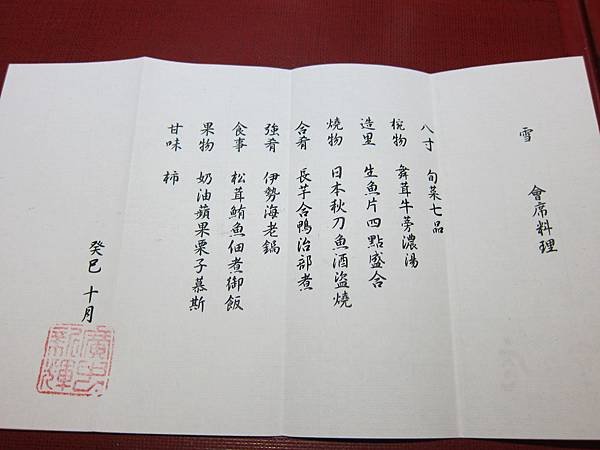 雪 會席料理
八寸 旬菜七品
椀物 舞茸牛蒡濃湯
造里 生魚片四點盛合
燒物 日本秋刀魚酒盜燒
合肴 長芋合鴨治部煮
強肴 伊勢海老鍋
食事 松茸鮪魚佃煮御飯
果物 奶油蘋果栗子慕斯
甘味 柿
癸巳 十月